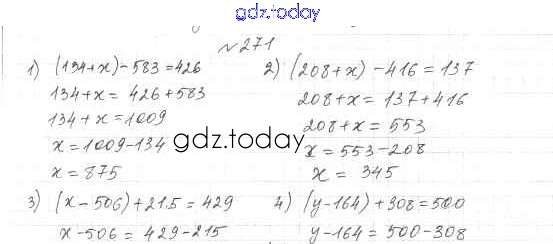 gdz.today
№ 271
1) (134+x)-583=426
134+x= 426+583
134+x=1009
x=1009-134
x=875
2) (208+x) -416=137
208+x= 137+416
208+x=553
x=553-208
x= 345
gdz.today
3) (x-506)+215=429
x-506=429-215
4) (y-164)+308=500
y-164=500-308